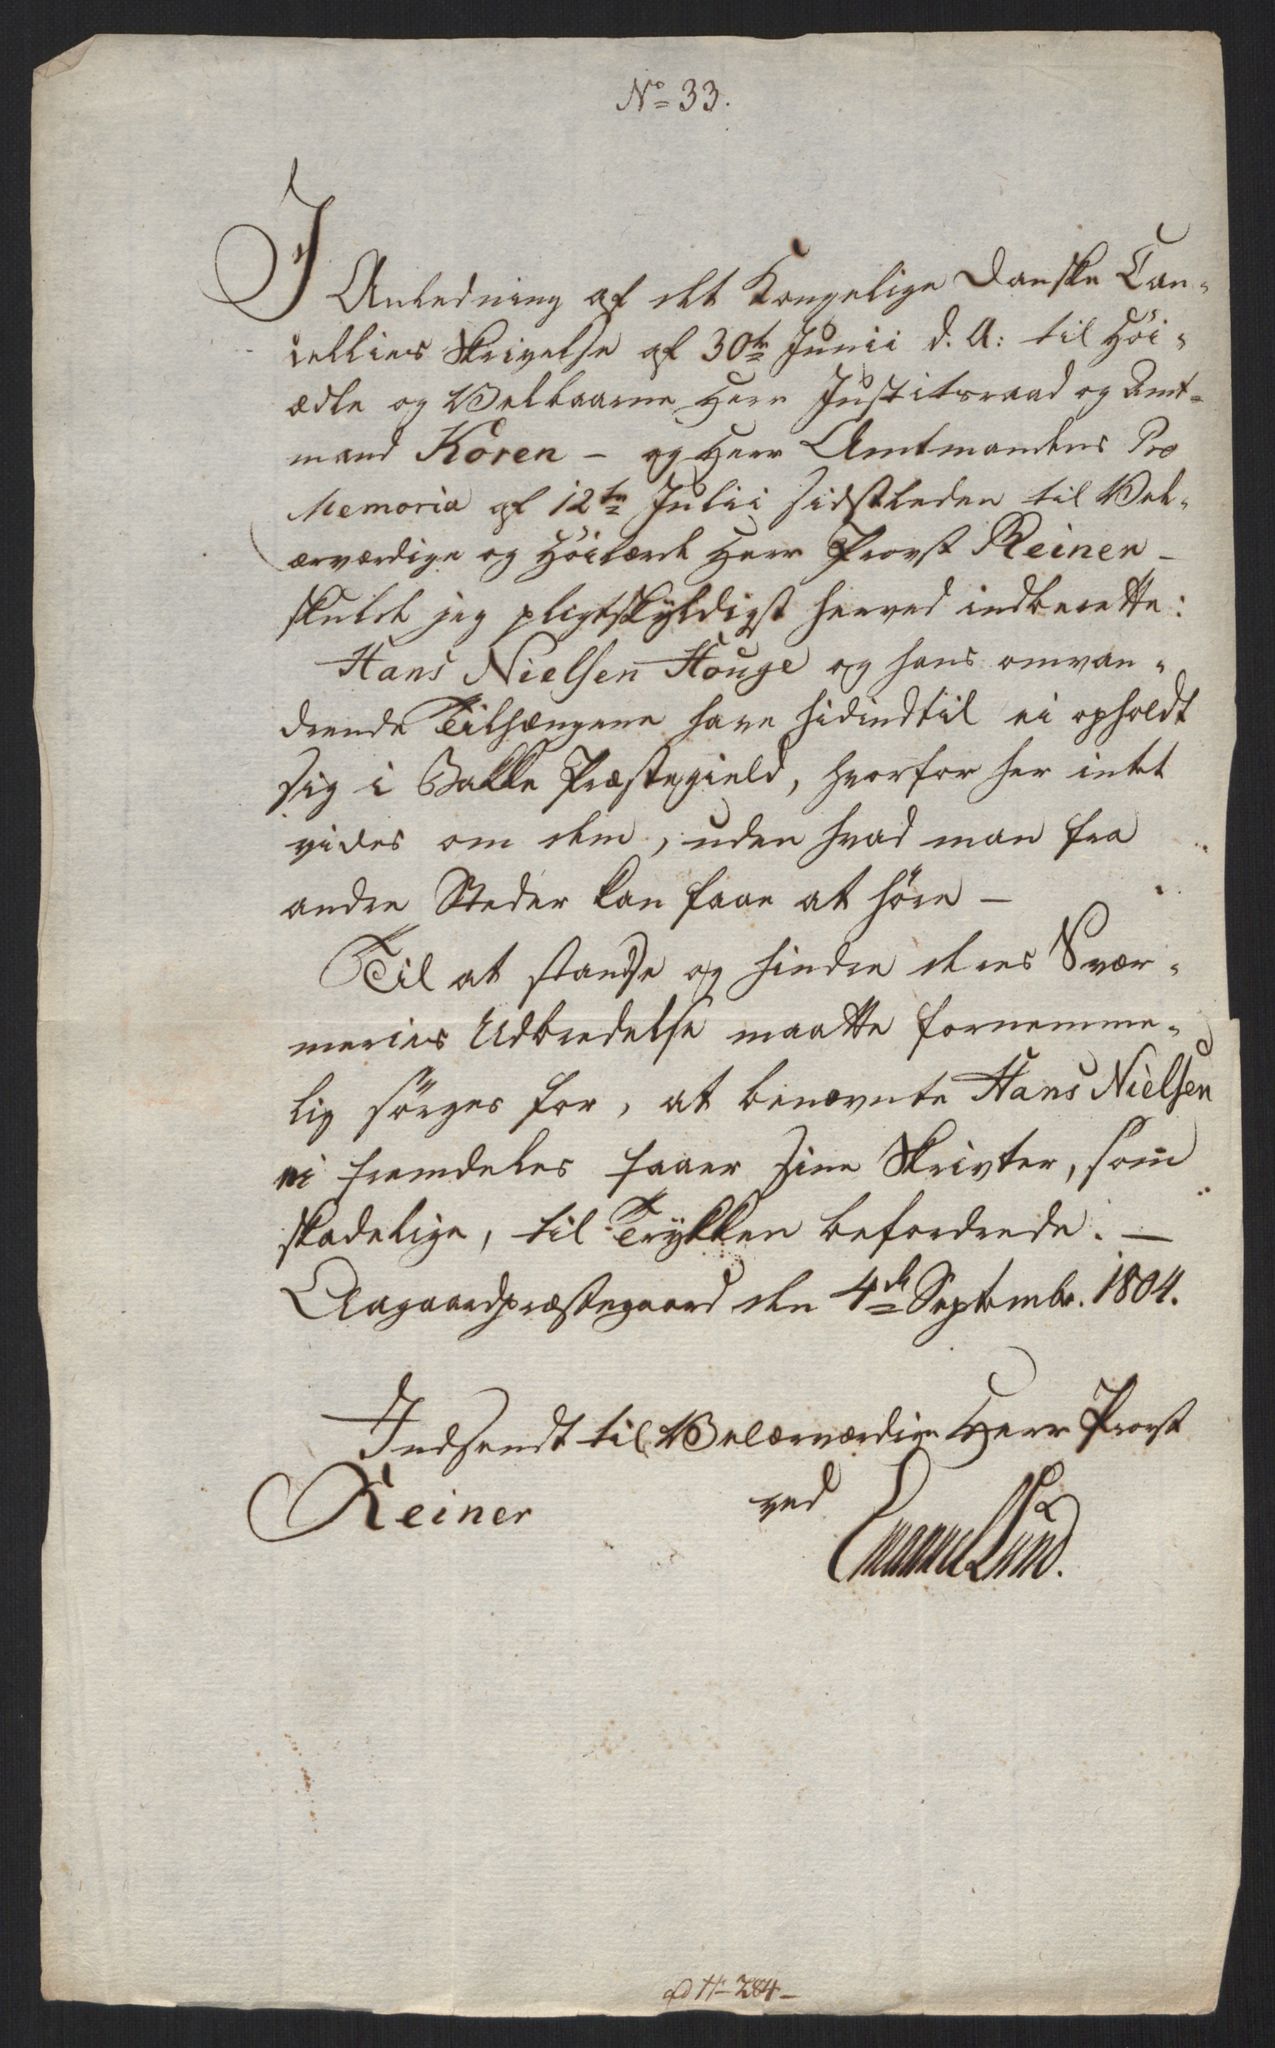 No 33.
I Anledning af det Kongelige Danske Can-
cellies Skrivelse af 30te Junii d. A: til Høi-
ædle og Velbaarne Herr Justitsraad og Amt-
mand Koren - og Herr Amtmandens Pro
Memoria af 12te Julii sidstleden til Vel-
ærværdige og Høilærde Herr Provst Reiner -
skulde jeg pligtskyldigst herved indberette:
Hans Nielsen Houge og hans omvan-
drende Tilhængere have hidindtil ei opholdt
sig i Bakke Præstegield, hvorfor her intet
vides om dem, uden hvad man fra
andre Steder kan faae at høre -
Til at standse og hindre deres Svær-
meries Udbredelse maatte fornemme-
lig sørges for, at benævnte Hans Nielsen
ei fremdeles faaer sine Skrivter, som
skadelige, til Trykken befordrede. -
Aagaardpræstegaard den 4de Septembr. 1804.
Indsendt til Velærværdige Herr Provst
Reiner ved
Emanuel Lund.
ad H 284 -